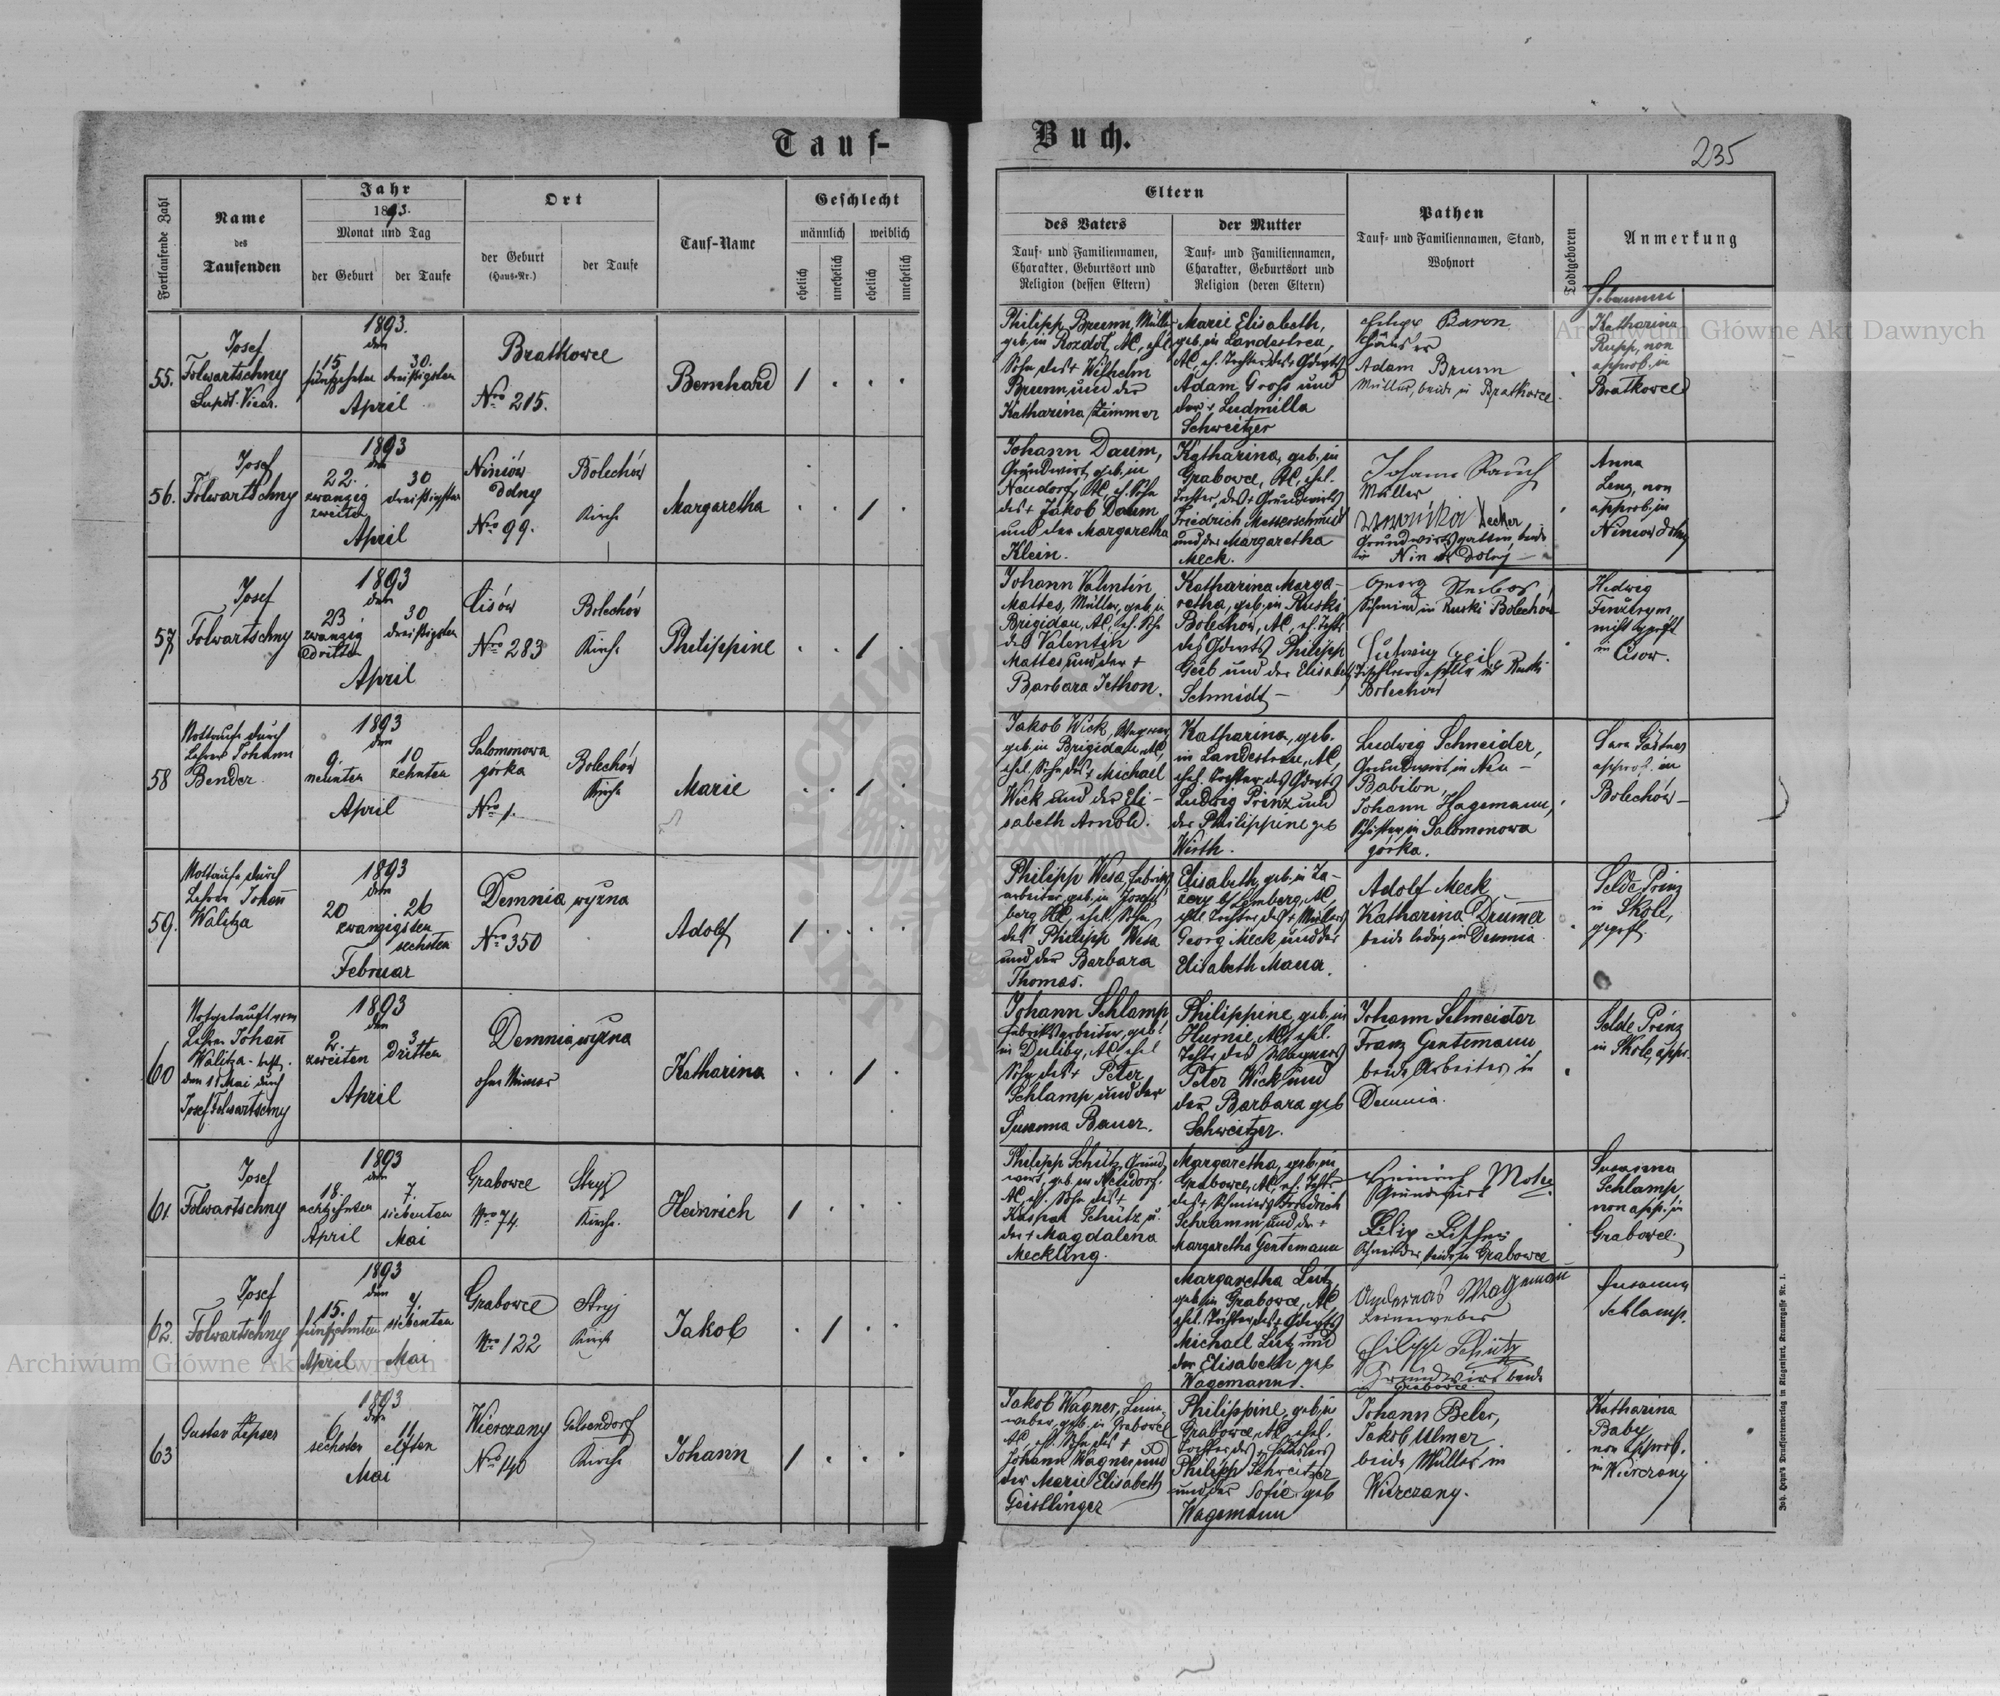 Tauf-
Buch.
235
Fortlaufende Zahl
Name
des
Taufenden
Jahr
1893.
Monat und Tag
der Geburt
der Taufe
Ort
der Geburt
(Haus-Nr.)
der Taufe
Tauf-Name
Geschlecht
männlich
weiblich
ehelich
unehelich
ehelich
unehelich
Eltern
des Vaters
Tauf- und Familiennamen,
Charakter, Geburtsort und
Religion (dessen Eltern)
der Mutter
Tauf- und Familiennamen,
Charakter, Geburtsort und
Religion (deren Eltern)
Pathen
Tauf- und Familiennamen, Stand,
Wohnort
Todtgeboren
Anmerkung
Hebamme
55.
Josef
Folwartschny
Supdt. Vicar.
1893.
den
15. 30.
fünfzehnten dreißigsten
April
Bratkowce
Nro 215.
Bernhard
Philipp Brunn, Müller
geb. in Rozdół, AC, ehel.
Sohn des + Wilhelm
Brunn und der
Katharina Zimmer
Marie Elisabeth,
geb. in Landestreu,
AC, eh. Tochter des Gdwts
Adam Groß und
der + Ludmilla
Schweitzer
Adam Brunn
Müller, beide in Bratkowce
Katharina
Rupp, non
approb. in
Bratkowce
56.
Josef
Folwartschny
1893
den
22. 30
zwanzig dreißigsten
zweiten
April
Niniów
dolny
Nro 99.
Bolechów
Kirche
Margaretha
Johann Daum,
Grundwirt, geb. in
Neudorf, AC, eh. Sohn
des + Jakob Daum
und der Margaretha
Klein.
Katharina, geb. in
Grabowce, AC, ehel.
Tochter des + Grundwirts
Friedrich Messerschmidt
und der Margaretha
Meck.
Johann Rauch
Müller
Decker
Grundwirtsgattin, beide
in Nin dolny
Anna
Lenz, non
approb. in
Niniow dolny
57
Josef
Folwartschny
1893
den
23 30
zwanzig dreißigsten
dritten
April
Cisów
Nro 283
Bolechów
Kirche
Philippine
Johann Valentin
Mattes, Müller, geb. in
Brigidau, AC, eh. Sohn
des Valentin
Mattes und der +
Barbara Jethon.
Katharina Marga-
retha, geb. in Ruski
Bolechow, AC, eh. Tochter
des Gdwts Philipp
Geib und der Elisabeth
Schmidt
Georg
Schmied in Ruski Bolechów
Ludwig Geib
Tischlergeselle in Ruski
Bolechów
Hedwig
nicht geprft
in Cisow.
58
Nottaufe durch
Lehrer Johann
Bender
1893
den
9. 10
neunten zehnten
April
Salomonowa
górka
Nro 1.
Bolechów
Kirche
Marie
Jakob Wick, Wagner
geb. in Brigidau, AC,
ehel. Sohn des + Michael
Wick und der Eli-
sabeth Arnold.
Katharina, geb.
in Landestreu, AC,
ehel. Tochter des Gdwts
Ludwig Prinz und
der Philippine geb
Wirth.
Ludwig Schneider,
Grundwirt in Neu-
Babilon,
Johann Hagemann,
in Salomonowa
górka.
Sara Gärtner
approb. in
Bolechów
59.
Nottaufe durch
Lehrer Johann
Walitza
1893
den
20 26
zwanzigsten
sechsten
Februar
Demnia wyżna
Nro 350
Adolf
Philipp Wesa, Fabriks-
arbeiter, geb. in Josefs-
berg HC, ehel. Sohn
des Philipp Wesa
und der Barbara
Thomas.
Elisabeth, geb. in Za-
b/Lemberg, AC,
ehel. Tochter des + Müllers
Georg Meck und der
Elisabeth Maua.
Adolf Meck
Katharina Drumer
beide ledig in Demnia
Selde Prinz
in Skole,
geprft
60
Notgetauft vom
Lehrer Johann
Walitza - best.
den 11 Mai durch
Josef Folwartschny
1893
den
2. 3.
zweiten dritten
April
Demnia wyżna
ohne Numer
Katharina
Johann Schlamp
Fabriksarbeiter, geb.
in Duliby, AC, ehel
Sohn des + Peter
Schlamp und der
Susanna Bauer.
Philippine, geb. in
Hurnie, AC, ehel.
Tochter des Wagners
Peter Wick und
der Barbara geb
Schweitzer.
Johann Schneider
Franz Gentemann
beide Arbeiter in
Demnia.
Selde Prinz
in Skole, appr.
61
Josef
Folwartschny
1893
den
18. 7.
achtzehnten siebenten
April Mai
Grabowce
Nro 74.
Stryj
Kirche.
Heinrich
Philipp Schütz, Grund-
wirt, geb. in Neudorf.
AC, eh. Sohn des +
Kaspar Schütz u.
der + Magdalena
Meckling.
Margaretha, geb. in
Grabowce, AC, eh. Tochter
des + Schmieds Friedrich
Schramm und der +
Margaretha Gentemann
Heinrich
Grundwirt
beide in Grabowce
Susanna
Schlamp
non app. in
Grabowce.
62.
Josef
Folwartschny
1893
den
15. 7.
fünfzehnten siebenten
April Mai
Grabowce
Nro 122
Stryj
Kirche
Jakob
Margaretha Lutz,
geb. in Grabowce, AC
ehel. Tochter des + Gdwts
Michael Lutz und
der Elisabeth geb
Wagemann.
Andereas Wagemann
Leineweber
Philipp Schütz
Grundwirt beide
Grabowce
Susanna
Schlamp.
63
Gustav Lipser
1893
den
6 11.
sechsten elften
Mai
Wierczany
Nro 140
Gelsendorf
Kirche
Johann
Jakob Wagner, Leine-
weber, geb. in Grabowce
AC, ehel. Sohn des +
Johann Wagner und
der Marie Elisabeth
Geistlinger
Philippine, geb. in
Grabowce, AC, ehel.
Tochter des + Häuslers
Philipp Schweitzer
und der Sofie geb
Wagemann
Johann Beler,
Jakob Ulmer
beide Müller in
Wierczany.
Katharina
Baby
non approb.
in Wierczany
Joh. Heyn's Drucksortenverlag in Klagenfurt, Kramergasse Nr. 1.
Archiwum Główne Akt Dawnych
Archiwum Główne Akt Dawnych